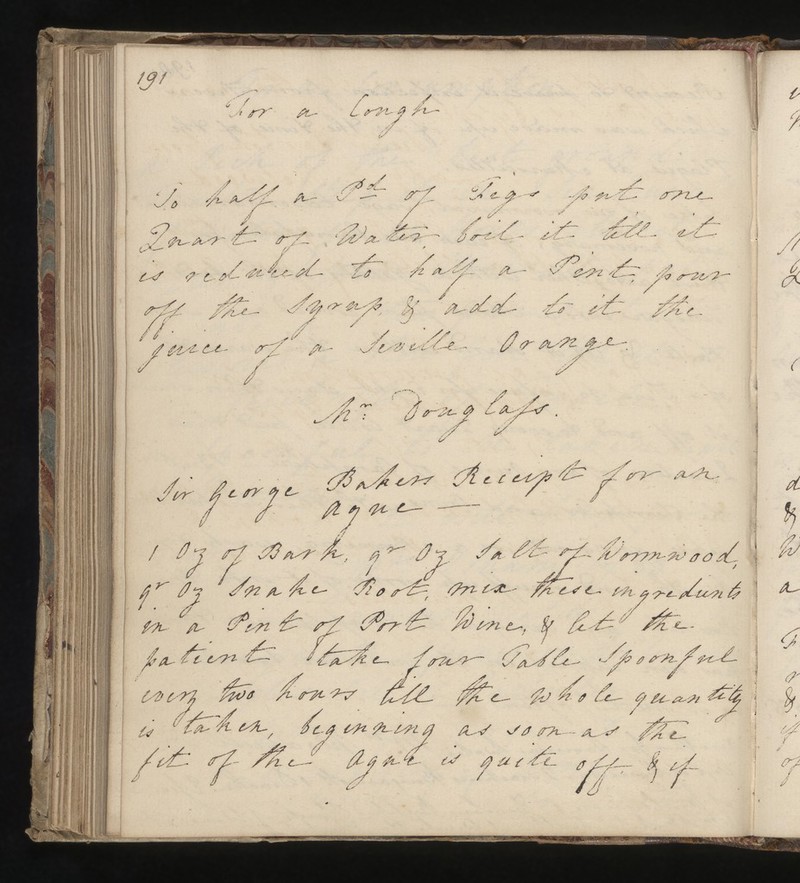 191
For a Cough
To half a Pd of Figs put one
Quart of Water, boil it till it
is reduced to half a Pint, pour
off the Syrup & add to it the
juice of a Seville Orange.
Mr. Douglass.
Sir George Bakers Receipt for an
ague —
1 Oz of Bark, qr Oz Salt of Wormwood,
qr Oz Snake Root, mix these ingredients
in a Pint of Port Wine, & let the
patient take four Table Spoonful
every two hours till the whole quantity
is taken, beginning as soon as the
fit of the Ague is quite off. & if